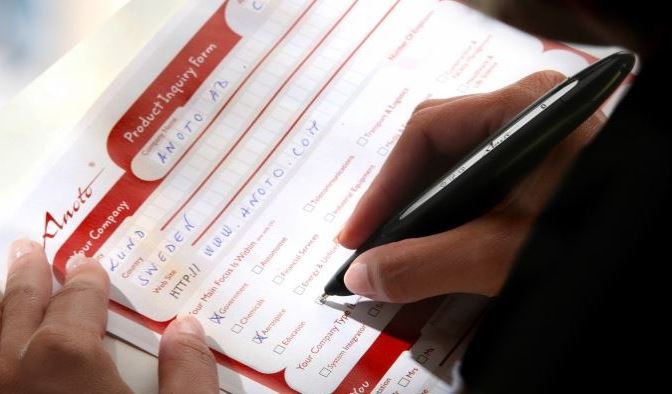 Product Inquiry Form
Company Name
ANOTO AB
Anoto
®
Your Company
LUND
Country
SWEDEN
Web Site
HTTP:// WWW.ANOTO.COM
Your Main Focus Is Within
Government
Chemicals
Aerospace
Education
Automotive
Financial Services
Energy &
Telecommunications
Industrial Equipment
Transport & Logistics
Number Of Employees
Your Company Type
System Integrator
You
Mrs
Anoto